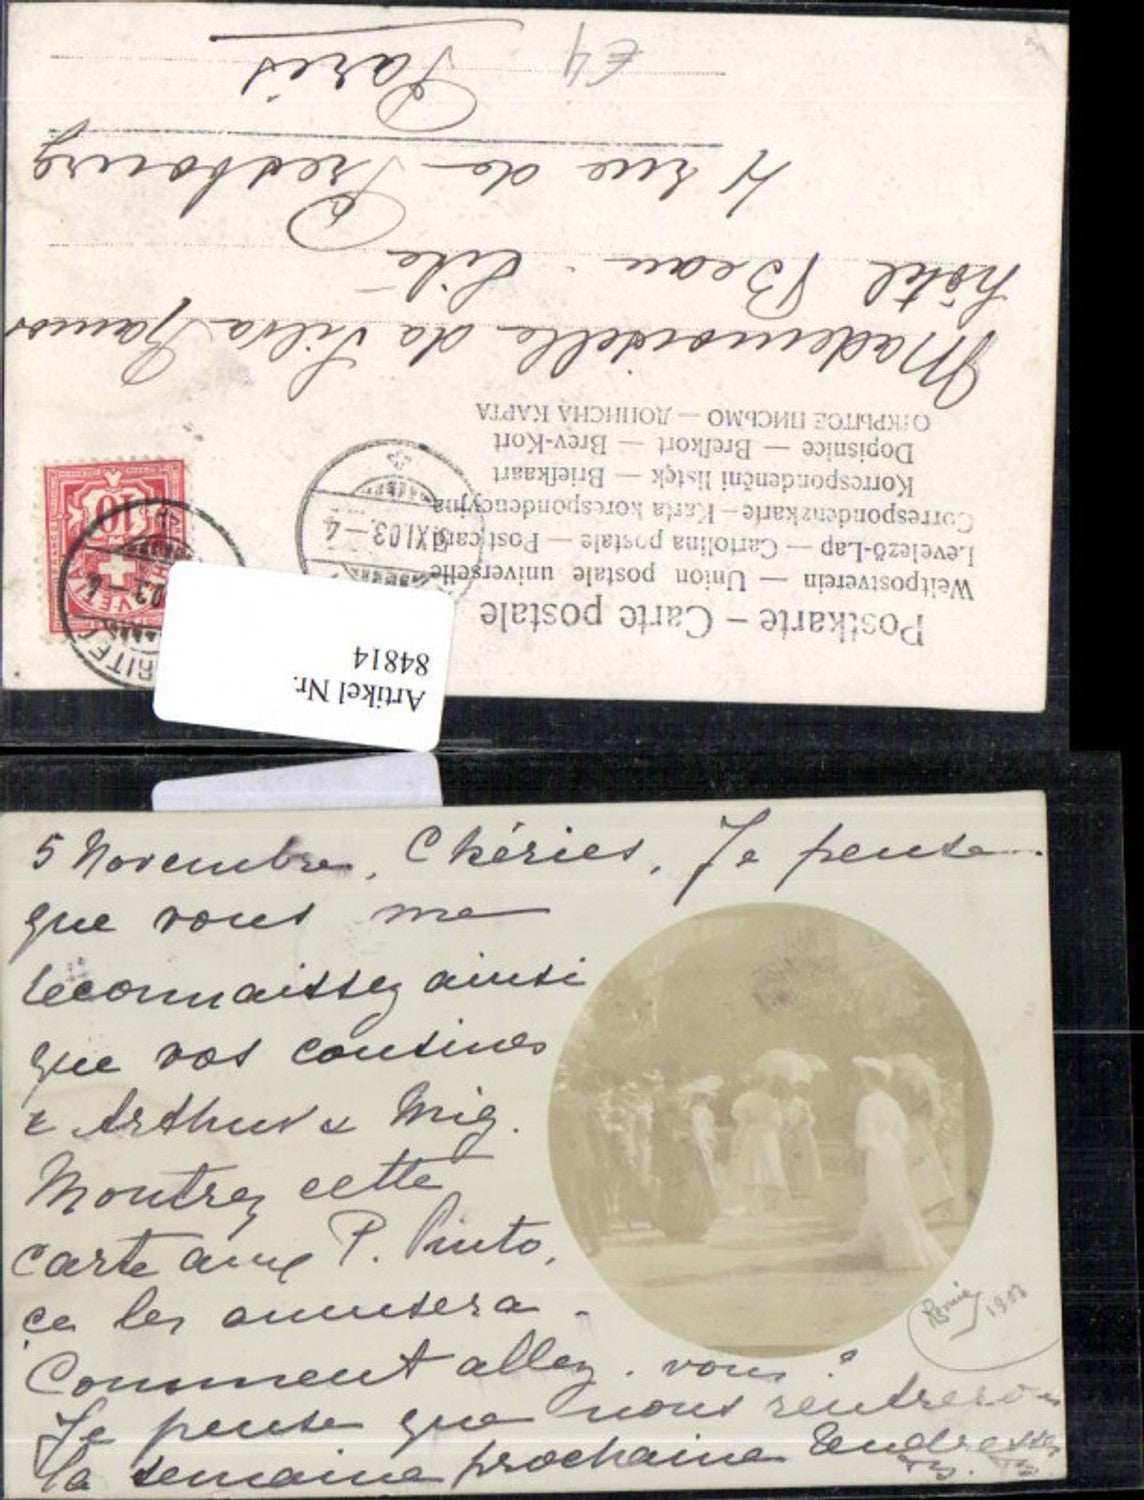 Postkarte – Carte postale
Weltpostverein — Union postale universelle
Levelező-Lap — Cartolina postale — Post card
Correspondenzkarte — Karta korespondencyjna
Korrespondenční lístek — Briefkaart
Dopisnice — Brefkort — Brev-Kort
ОТКРЫТОЕ ПИСЬМО — ДОПИСНА КАРТА
Mademoiselle da Silva Ramos
hôtel Beau-Sité
4 rue de Presbourg
Paris
£4
10
XI.03 – 4
03 – 4
Artikel Nr.
84814
5 Novembre, Chéries, Je pense
que vous me
reconnaissez ainsi
que vos cousines
& Arthur & Mig.
Montrez cette
carte aux P. Pinto,
ça les amusera –
Comment allez-vous ?
Je pense que nous rentrerons
la semaine prochaine Tendresses
1903